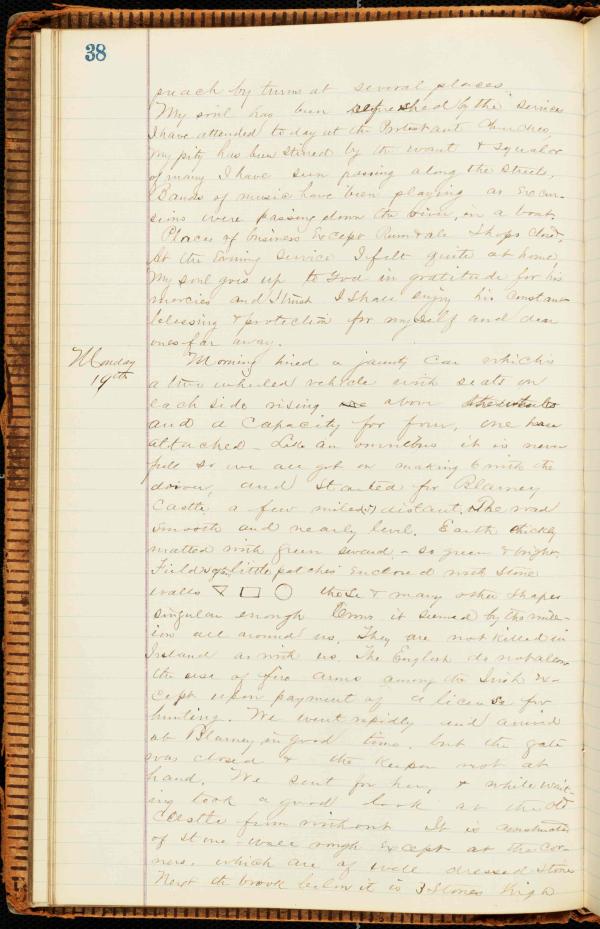 38
preach by turns at several places.
My soul has been refreshed by the service
I have attended to day at the Protestant Churches,
my pity has been stirred by the want & squalor
of many I have seen passing along the streets,
Bands of music have been playing as excur-
sions were passing down the river, in a boat,
Places of business Except Rum & ale Shops closed,
At the Evening Service I felt quite at home,
My soul goes up to God in gratitude for his
mercies and I trust I shall enjoy his constant
blessing & protection for myself and dear
ones far away.
Monday
19th
Morning hired a jaunty Car which is
a two wheeled vehicle with seats on
each side rising above the wheels
and a Capacity for four, one horse
attached - Like an omnibus it is never
full so we all got on making 6 with the
driver, and Started for Blarney
Castle a few miles distant, The road
smooth and nearly level. Earth thickly
matted with green sward - so green & bright,
Fields of little patches Enclosed with stone
walls these & many other shapes
singular enough it seemed by the
all around us, They are not killed in
Ireland as with us. The English do not allow
the use of fire arms among the Irish ex-
cept upon payment of a license for
hunting. We went rapidly and arrived
at Blarney in good time, but the gate
was closed & the Keeper not at
hand. We sent for her, & while wait-
ing took a good look at the old
Castle from without It is constructed
of Stone wall rough Except at the cor-
ners, which are of well dressed Stone
Next the brook below it is 3 Stories high